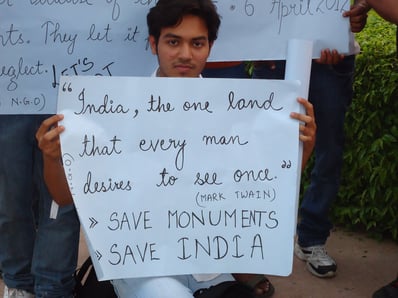 cause of
6 April 2012
nts. They let it
neglect.
N.G.O)
LET'S
"India, the one land
that every man
desires to see once."
(MARK TWAIN)
» SAVE MONUMENTS
» SAVE INDIA